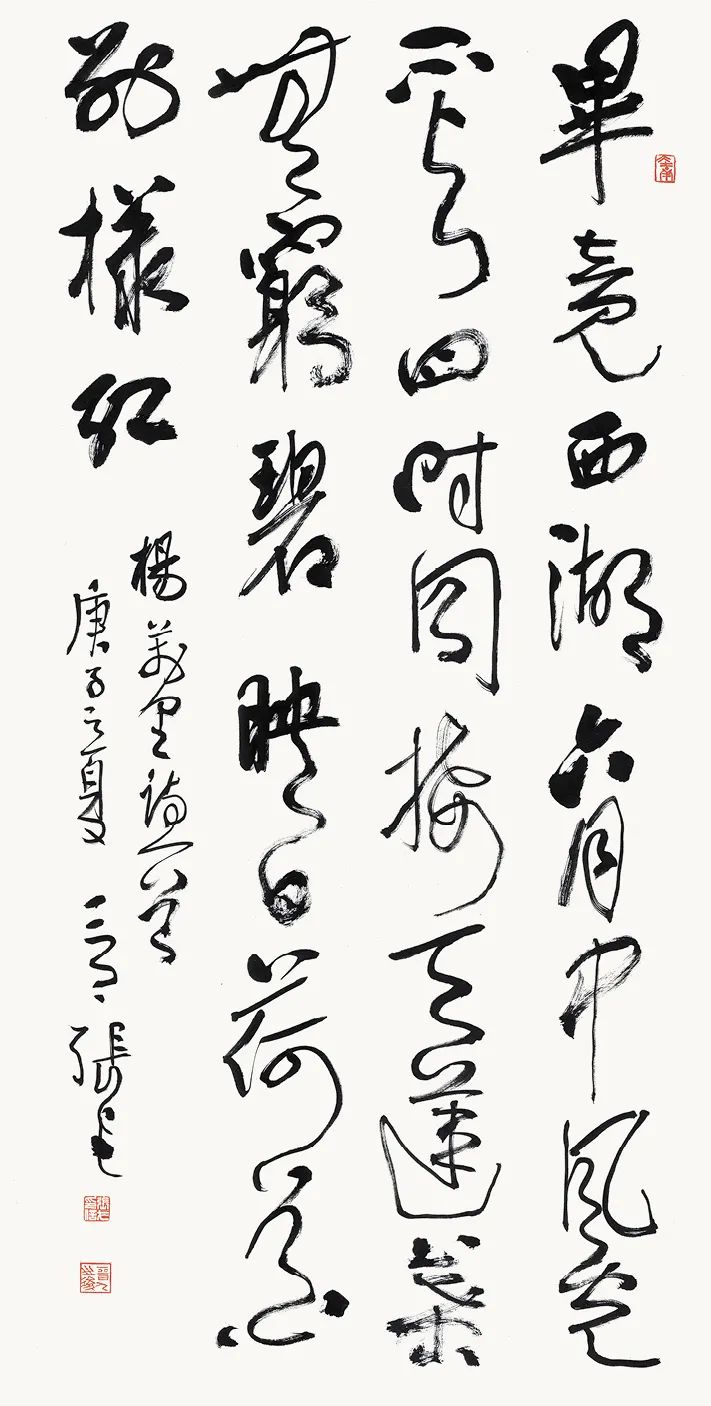 畢竟西湖六月中風光
不與四時同接天蓮葉
無窮碧映日荷花
別樣紅
楊萬里詩一首
庚子之夏 張